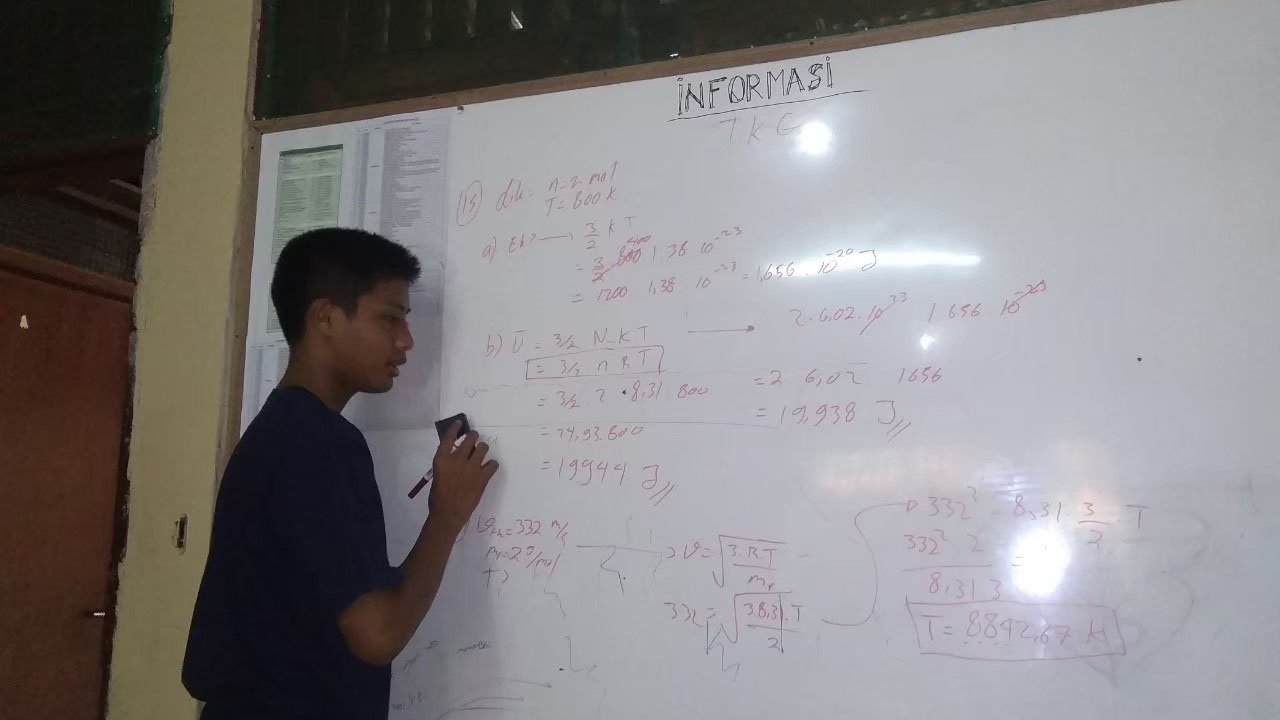 İNFORMASİ
7 k G
15 dik = n = 2 mol
T = 800 k
a) Ek? → 3/2 k T
= 3/2 800 400 1.38 10⁻²³
= 1200 1,38 . 10⁻²³ = 1,656 . 10⁻²⁰ J
b) U = 3/2 N k T → 2 . 6,02 . 10²³ 1 656 10⁻²⁰
= 3/2 n R T
= 3/2 2 . 8,31 800 = 2 6,02 1656
= 24,93.800 = 19,938 J
= 19944 J
= 332 m/s
T?
v = √3.R.T/mr
332 = √3.8,31.T/2
332² 8,31 . 3/2 . T
332² 2 =
8,31 3
T = 8842,67 k